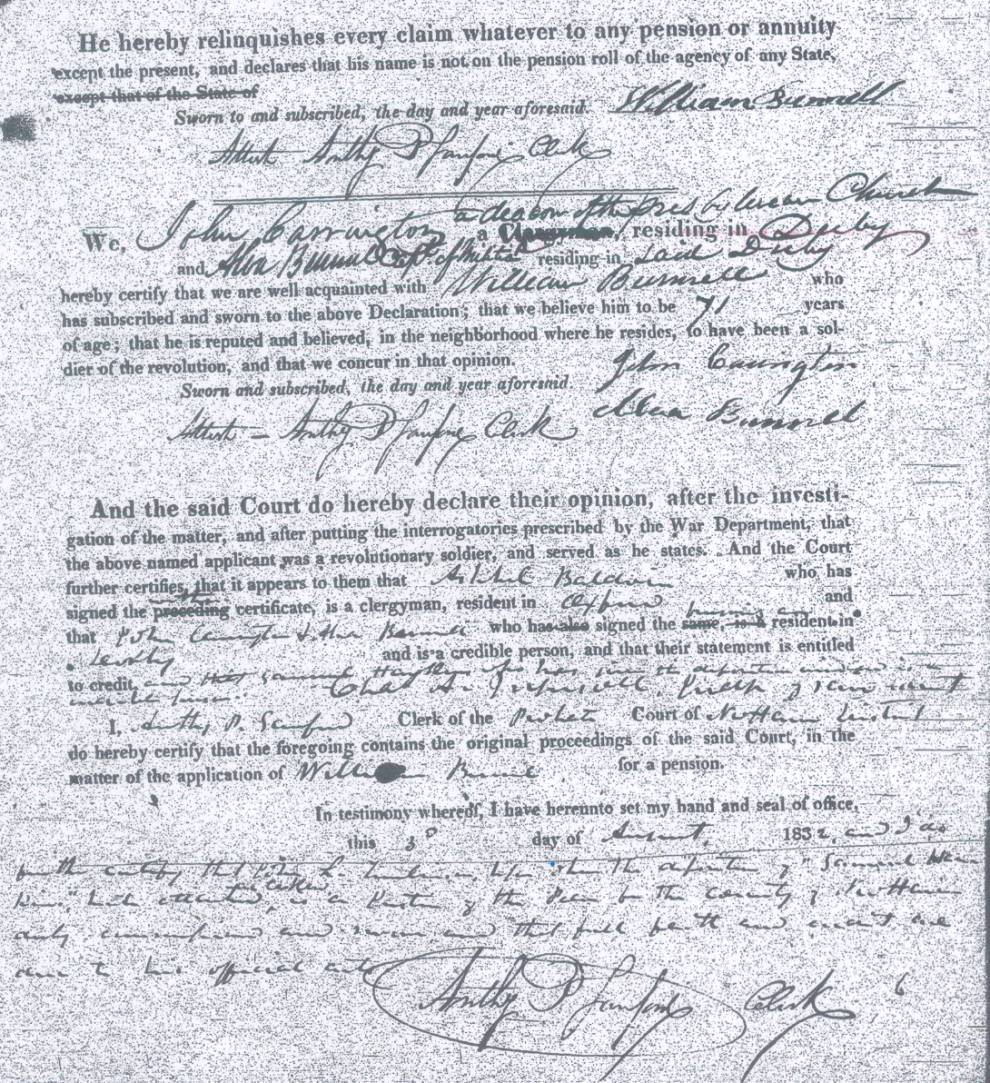 He hereby relinquishes every claim whatever to any pension or annuity
except the present, and declares that his name is not on the pension roll of the agency of any State,
except that of the State of
Sworn to and subscribed, the day and year aforesaid. William Bunnell
Attest Clerk
a deacon of the Presbyterian Church
We, John Carrington a Clergyman, residing in Derby
and Alva Bunnell Capt of Militia residing in said Derby
hereby certify that we are well acquainted with William Bunnell who
has subscribed and sworn to the above Declaration; that we believe him to be 71 years
of age; that he is reputed and believed, in the neighborhood where he resides, to have been a sol-
dier of the revolution, and that we concur in that opinion.
John Carrington
Sworn and subscribed, the day and year aforesaid.
Alva Bunnell
Attest – Clerk
And the said Court do hereby declare their opinion, after the investi-
gation of the matter, and after putting the interrogatories prescribed by the War Department, that
the above named applicant was a revolutionary soldier, and served as he states. And the Court
further certifies, that it appears to them that Baldwin who has
signed the preceding certificate, is a clergyman, resident in Oxford and
that John Carrington & Alva Bunnell who has also signed the same, is a resident in
Derby and is a credible person, and that their statement is entitled
to credit, and that Samuel
I, Clerk of the Probate Court of New Haven District
do hereby certify that the foregoing contains the original proceedings of the said Court, in the
matter of the application of William for a pension.
In testimony whereof, I have hereunto set my hand and seal of office,
this 3d day of August, 1832, and I do
certify that before whom the deposition of Samuel
is a of the Peace for the county of New Haven
duly and sworn and that full faith and credit are
due to his official acts
Clerk